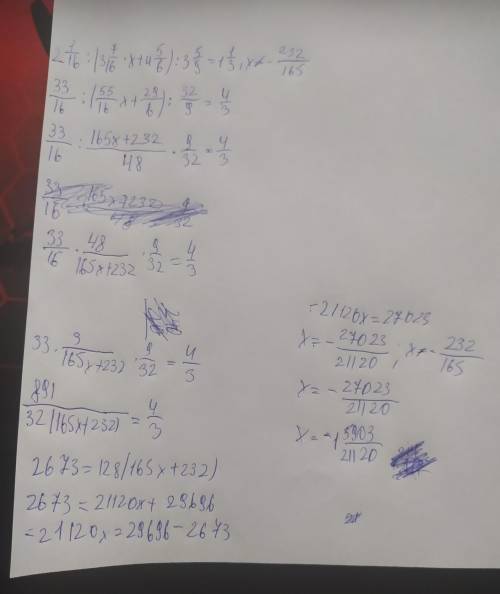 2 1/16 : (3 7/16 · x + 4 5/6) : 3 5/9 = 1 1/3, x ≠ - 232/165
33/16 : (55/16 x + 29/6) : 32/9 = 4/3
33/16 : (165x+232)/48 · 9/32 = 4/3
33/16 · 48/(165x+232) · 9/32 = 4/3
33 · 3/(165x+232) · 9/32 = 4/3
891/(32(165x+232)) = 4/3
2673 = 128(165x+232)
2673 = 21120x + 29696
= 21120x = 29696 - 2673
-21120x = 27023
x = - 27023/21120 ; x ≠ - 232/165
x = - 27023/21120
x = -1 5903/21120